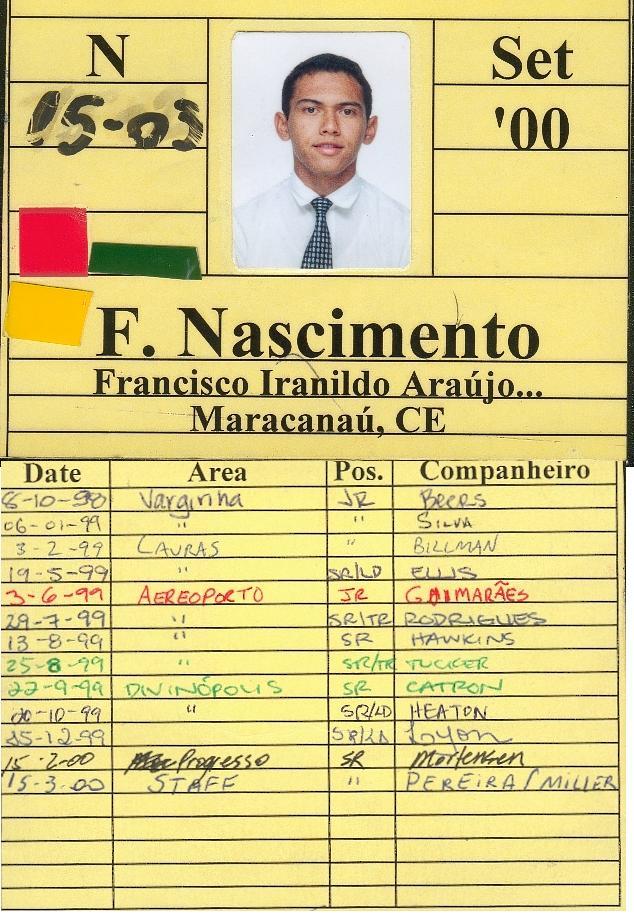 N
Set
15-03
'00
F. Nascimento
Francisco Iranildo Araújo...
Maracanaú, CE
Date Area Pos. Companheiro
8-10-98 Varginha JR BEERS
06-01-99 " " SILVA
3-2-99 LAURAS " BILLMAN
19-5-99 " SR/LD ELLIS
3-6-99 AEREOPORTO JR GUIMARÃES
29-7-99 " SR/TR RODRIGUES
13-8-99 " SR HAWKINS
25-8-99 " SR/TR TUCKER
22-9-99 DIVINÓPOLIS SR CATRON
20-10-99 " SR/LD HEATON
15-12-99 SR/LD Lyon
15-2-00 Progresso SR Mortensen
15-3-00 STAFF " PEREIRA/MILLER